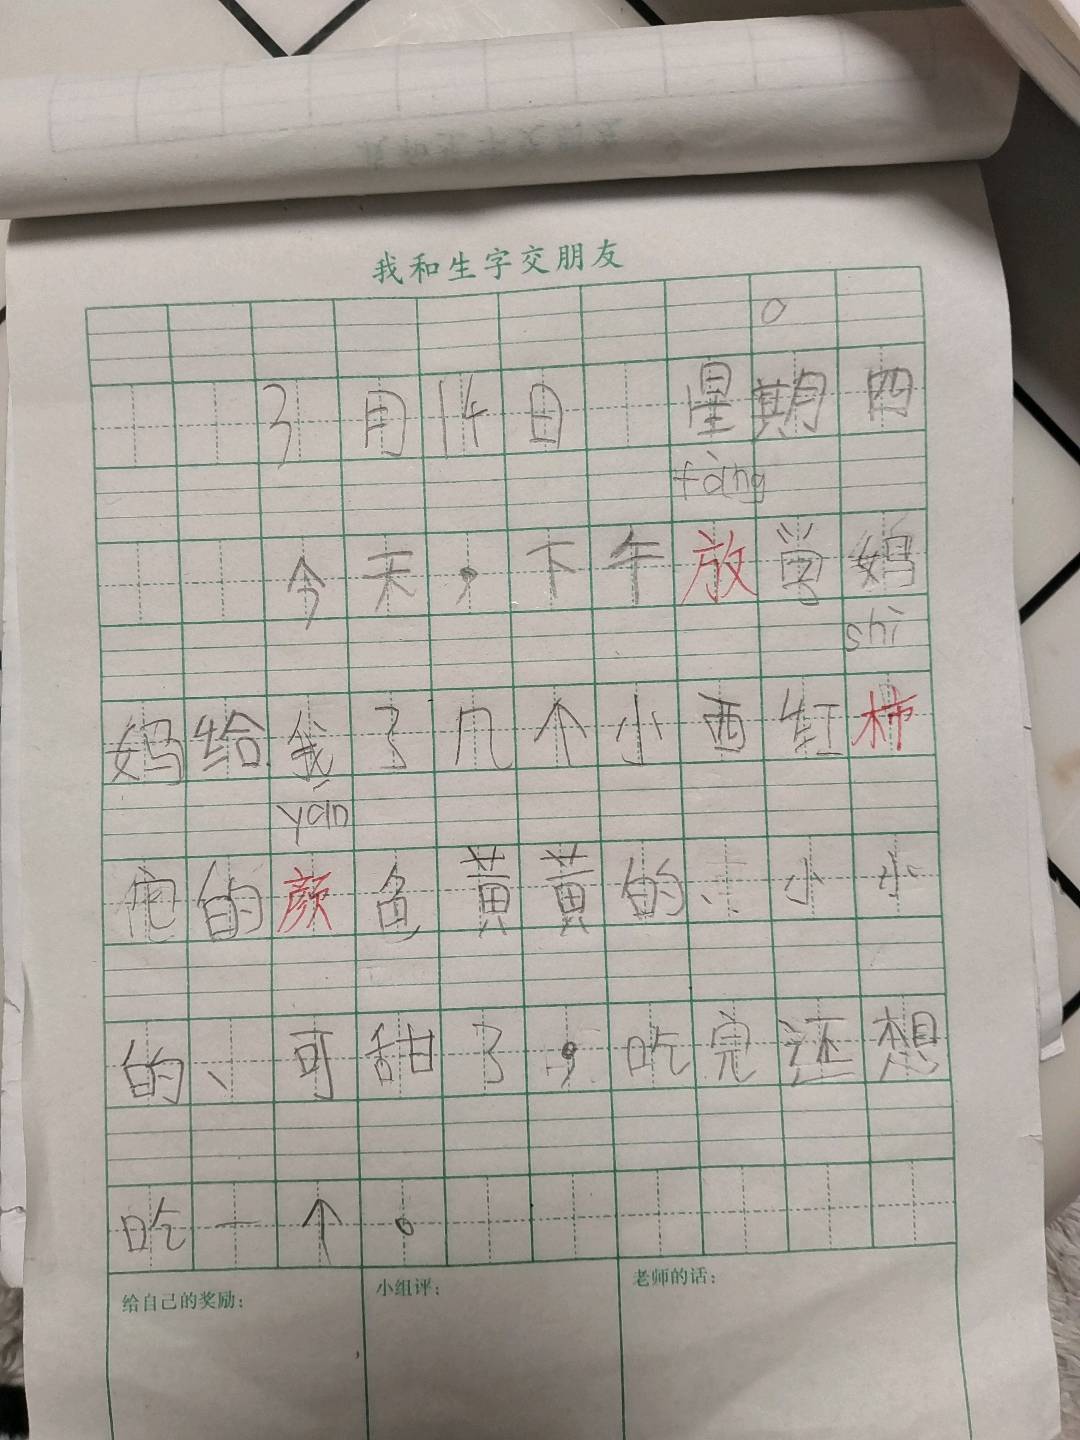 我和生字交朋友
。
3月14日 星期四
fàng
今天，下午放学妈
shì
妈给我了几个小西红柿
yán
它的颜色黄黄的、小小
的、可甜了，吃完还想
吃一个。
给自己的奖励：
小组评：
老师的话：